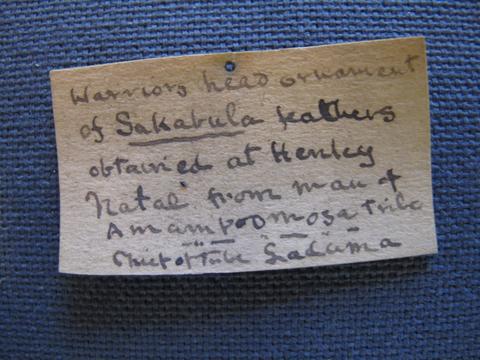 Warriors head ornament
of Sakabula feathers
obtained at Henley
Natal from man of
Amampoomosa Tribe
Chief of Tribe Laduma